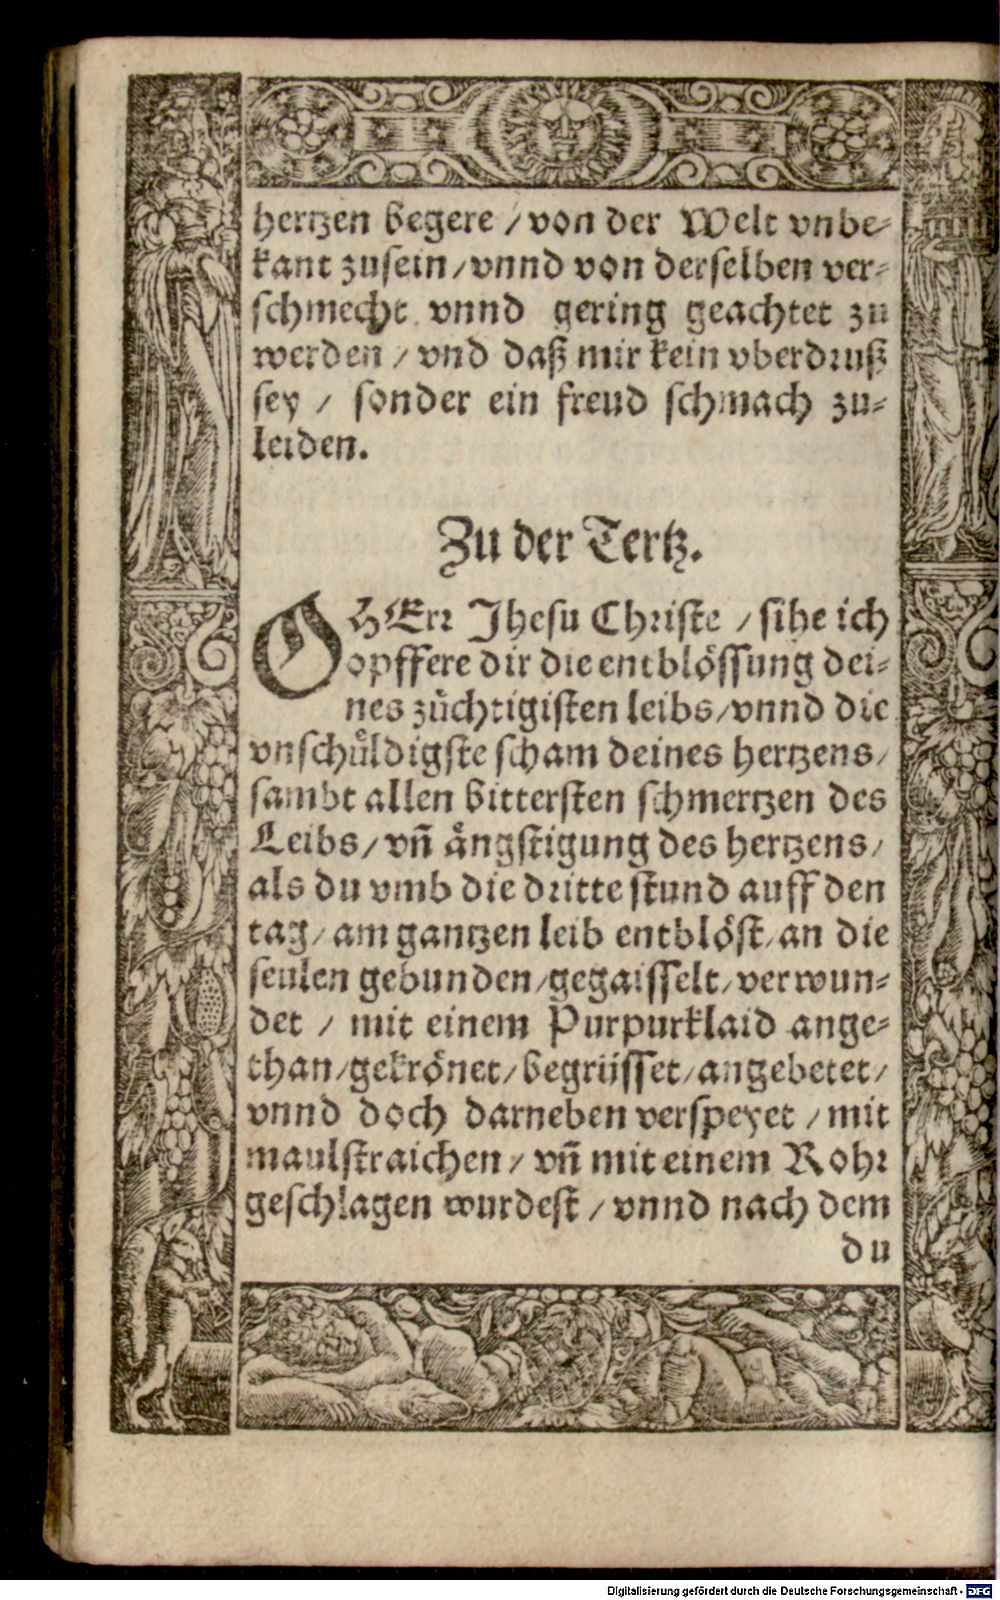 hertzen begere / von der Welt vnbe⸗
kant zusein / vnnd von derselben ver⸗
schmecht vnnd gering geachtet zu
werden / vnd daß mir kein vberdruß
sey / sonder ein freud schmach zu⸗
leiden.
Zu der Tertz.
O HErr Jhesu Christe / sihe ich
opffere dir die entblössung dei⸗
nes zůchtigisten leibs / vnnd die
vnschůldigste scham deines hertzens /
sambt allen bittersten schmertzen des
Leibs / vñ ångstigung des hertzens /
als du vmb die dritte stund auff den
tag / am gantzen leib entblöst / an die
seulen gebunden / gegaisselt / verwun⸗
det / mit einem Purpurklaid ange⸗
than / gekrönet / begrüsset / angebetet /
vnnd doch darneben verspeyet / mit
maulstraichen / vñ mit einem Rohr
geschlagen wurdest / vnnd nach dem
du
Digitalisierung gefördert durch die Deutsche Forschungsgemeinschaft - DFG